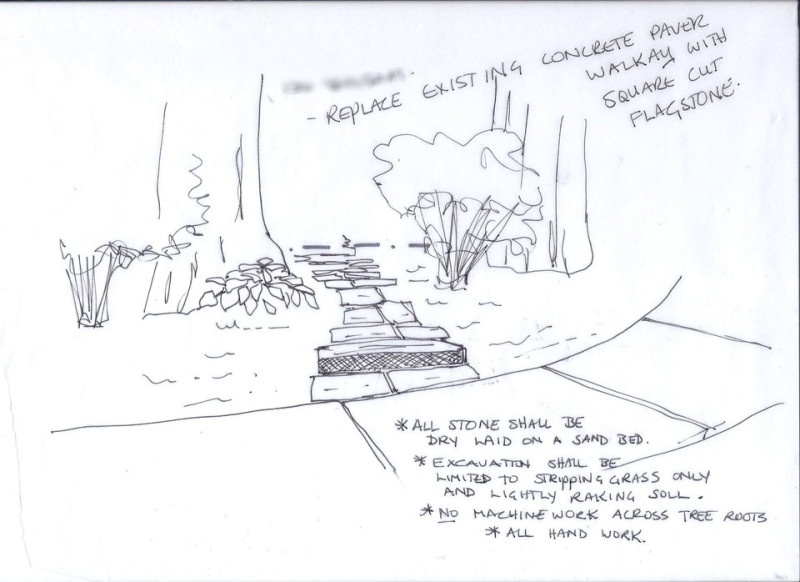 - REPLACE EXISTING CONCRETE PAVER
WALKAY WITH
SQUARE CUT
FLAGSTONE.
* ALL STONE SHALL BE
DRY LAID ON A SAND BED.
* EXCAVATION SHALL BE
LIMITED TO STRIPPING GRASS ONLY
AND LIGHTLY RAKING SOIL.
* NO MACHINE WORK ACROSS TREE ROOTS
* ALL HAND WORK.